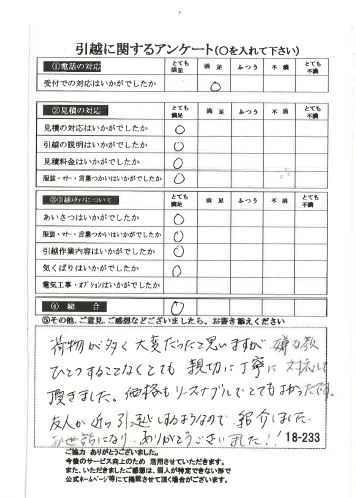 引越に関するアンケート(〇を入れて下さい)
①電話の対応 とても満足 満足 ふつう 不満 とても不満
受付での対応はいかがでしたか 〇
②見積の対応 とても満足 満足 ふつう 不満 とても不満
見積の対応はいかがでしたか 〇
引越の説明はいかがでしたか 〇
見積料金はいかがでしたか 〇
服装・マナー・言葉つかいはいかがでしたか 〇
③引越スタッフについて とても満足 満足 ふつう 不満 とても不満
あいさつはいかがでしたか 〇
服装・マナー・言葉つかいはいかがでしたか 〇
引越作業内容はいかがでしたか 〇
気くばりはいかがでしたか 〇
電気工事・オプションはいかがでしたか
④ 総合 〇
⑤その他、ご意見、ご感想などございましたら、お書き添えください
荷物が多く大変だったと思いますが 嫌な顔
ひとつすることなくとても 親切に丁寧に 対応して
頂きました。価格もリーズナブルでとてもよかったです。
友人が近々引っ越しするようなので 紹介しました
お世話になり ありがとうございました!!
18-233
ご協力 ありがとうございました。
今後のサービス向上のため 活用させていただきます。
また、いただきましたご感想は、個人が特定できない形で
公式ホームページ等にて掲載させて頂く場合がございます。